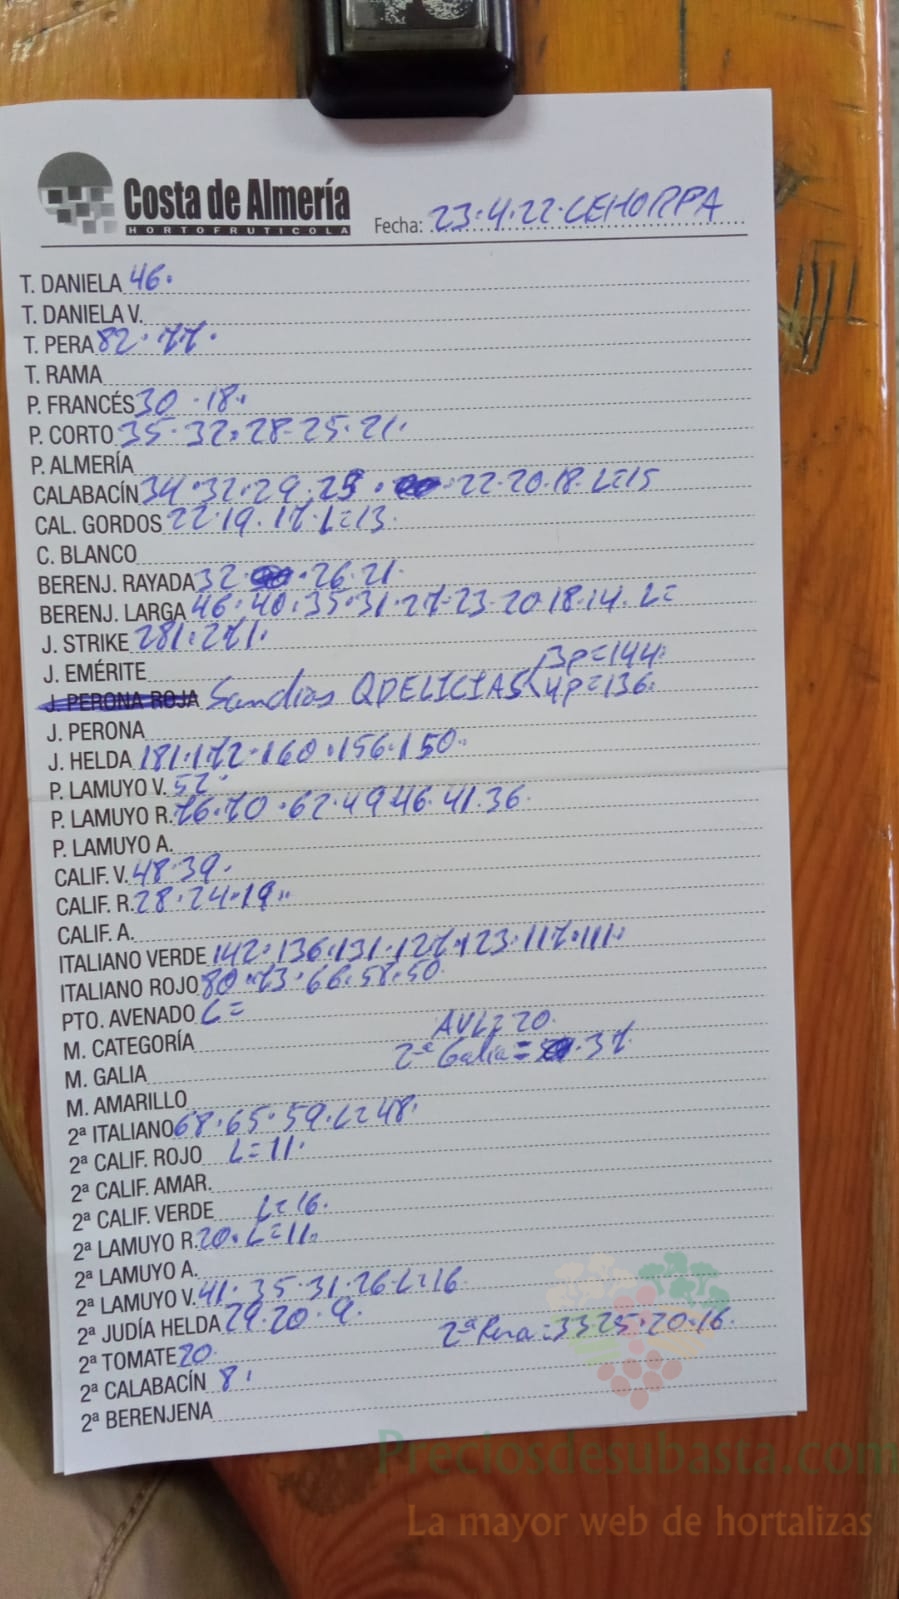 Costa de Almería
HORTOFRUTICOLA
Fecha: 23.4.22.CEHORPA
T. DANIELA 46.
T. DANIELA V.
T. PERA 82.77.
T. RAMA
P. FRANCÉS 30.18.
P. CORTO 35.32.28-25.21.
P. ALMERÍA
CALABACÍN 34.32.29.25.22-20.18.L=15
CAL. GORDOS 22.19.17.L=13.
C. BLANCO
BERENJ. RAYADA 32.26.21.
BERENJ. LARGA 46.40.35.31.27-23-20.18.14.L=
J. STRIKE 281.271.
J. EMÉRITE 3p=144.
J. PERONA ROJA Sandias QDELICIAS 4p=136.
J. PERONA
J. HELDA 181.172.160.156.150.
P. LAMUYO V. 52.
P. LAMUYO R. 76.70.62.49.46.41.36.
P. LAMUYO A.
CALIF. V. 48.39.
CALIF. R. 28.24.19.
CALIF. A.
ITALIANO VERDE 142.136.131.127.123.117.111.
ITALIANO ROJO 80.73.66.58.50.
PTO. AVENADO L=
M. CATEGORÍA 20.
M. GALIA 2ª Galia=37.
M. AMARILLO
2ª ITALIANO 68.65.59.L=48.
2ª CALIF. ROJO L=11.
2ª CALIF. AMAR.
2ª CALIF. VERDE L=16.
2ª LAMUYO R. 20.L=11.
2ª LAMUYO A.
2ª LAMUYO V. 41.35.31.26-L=16
2ª JUDÍA HELDA 29.20.9.
2ª TOMATE 20. 2ª Pera=33 25.20.16.
2ª CALABACÍN 8.
2ª BERENJENA
Preciosdesubasta.com
La mayor web de hortalizas